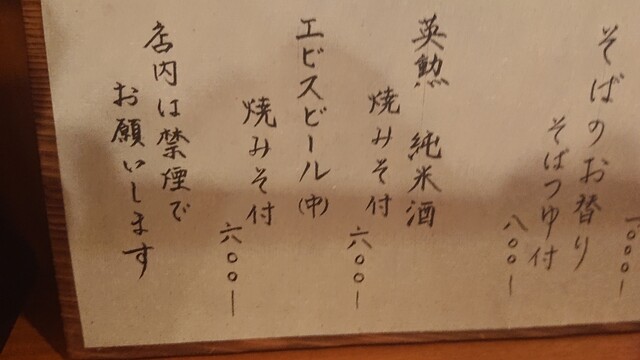 そばのお替り
そばつゆ付
八〇〇ー
英勲 純米酒
焼みそ付
六〇〇ー
エビスビール(中)
焼みそ付
六〇〇ー
店内は禁煙で
お願いします